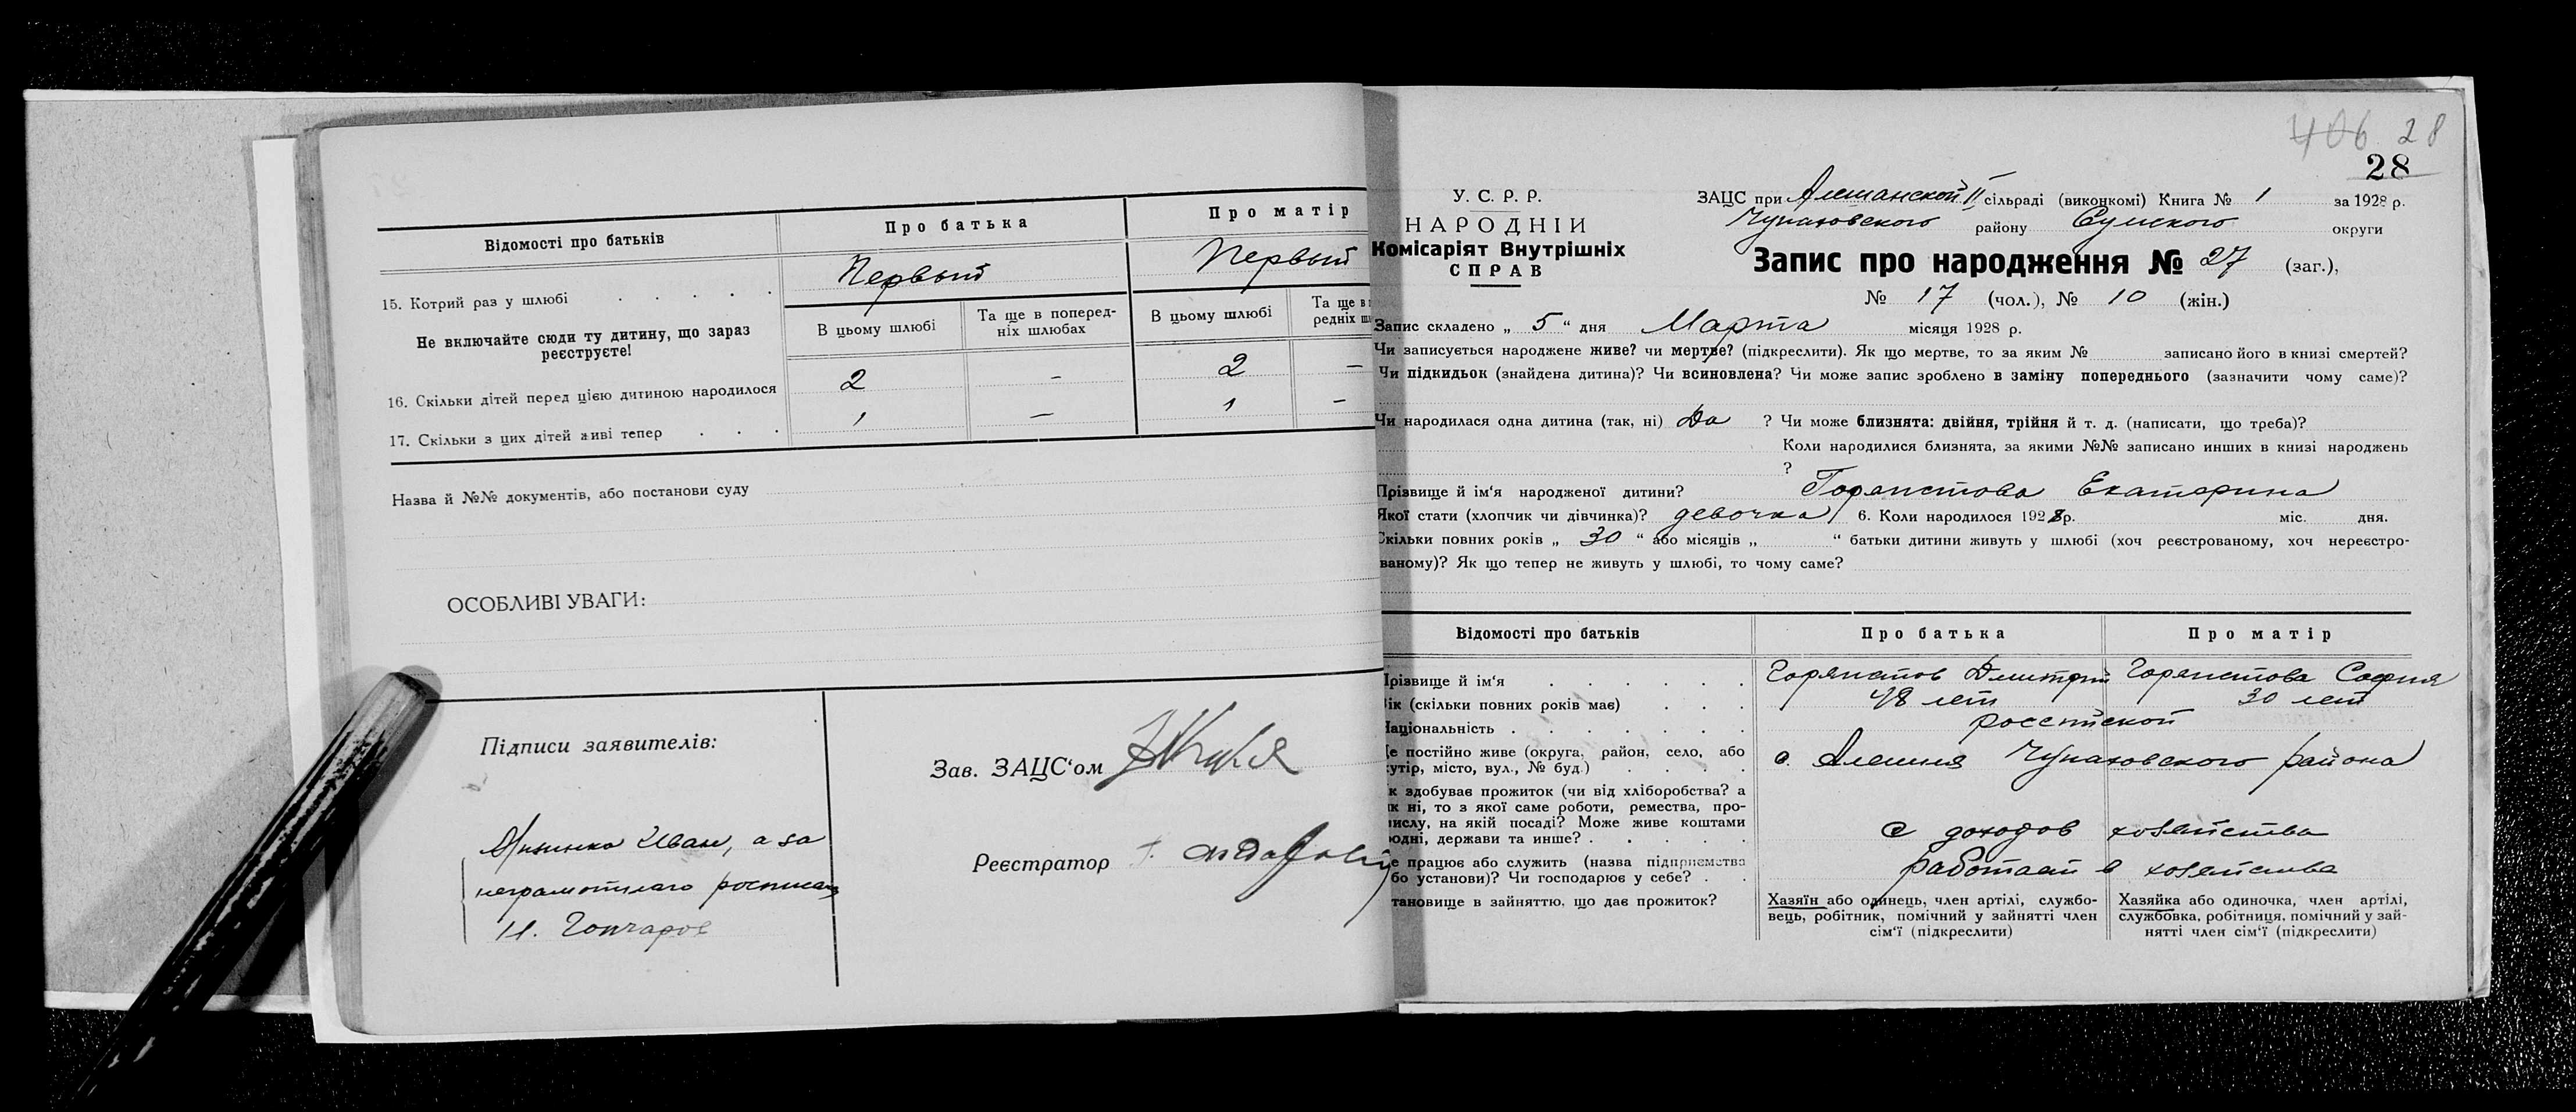 Відомості про батьків
Про батька
Про матір
15. Котрий раз у шлюбі
Первый
Первый
Не включайте сюди ту дитину, що зараз
реєструєте!
В цьому шлюбі
Та ще в попередніх шлюбах
В цьому шлюбі
Та ще в
редніх
16. Скільки дітей перед цією дитиною народилося
2
-
2
-
17. Скільки з цих дітей живі тепер
1
-
1
-
Назва й №№ документів, або постанови суду
ОСОБЛИВІ УВАГИ:
Підписи заявителів:
Иван, а за
неграмотного
Н. Гончаров
Зав. ЗАЦС‘ом
Реєстратор
406 28
28
У. С. Р. Р.
НАРОДНІЙ
Комісаріят Внутрішніх
СПРАВ
ЗАЦС при Алешанской II сільраді (виконкомі) Книга № 1 за 1928 р.
Чупаховского району Сумского округи
Запис про народження № 27 (заг.),
№ 17 (чол.), № 10 (жін.)
Запис складено „ 5 “ дня Марта місяця 1928 р.
Чи записується народжене живе? чи мертве? (підкреслити). Як що мертве, то за яким № записано його в книзі смертей?
Чи підкидьок (знайдена дитина)? Чи всиновлена? Чи може запис зроблено в заміну попереднього (зазначити чому саме)?
Чи народилася одна дитина (так, ні) Да ? Чи може близнята: двійня, трійня й т. д. (написати, що треба)?
Коли народилися близнята, за якими №№ записано инших в книзі народжень
?
Прізвище й ім‘я народженої дитини? Екатерина
Якої стати (хлопчик чи дівчинка)? девочка 6. Коли народилося 1928 р. міс. дня.
Скільки повних років „ 30 “ або місяців „ “ батьки дитини живуть у шлюбі (хоч реєстрованому, хоч нереєстро-
ваному)? Як що тепер не живуть у шлюбі, то чому саме?
Відомості про батьків
Про батька
Про матір
Прізвище й ім‘я
Дмитрий
София
Вік (скільки повних років має)
48 лет
30 лет
Національність
российской
Де постійно живе (округа, район, село, або
хутір, місто, вул., № буд.)
с. Алешня Чупаховского района
Як здобуває прожиток (чи від хліборобства? а
як ні, то з якої саме роботи, ремества, про-
мислу, на якій посаді? Може живе коштами
родні, держави та инше?
С доходов хозяйства
Де працює або служить (назва підприємства
або установи)? Чи господарює у себе?
Работает в хозяйстве
Становище в зайняттю, що дає прожиток?
Хазяїн або одинець, член артілі, службо-
вець, робітник, помічний у зайнятті член
сім‘ї (підкреслити)
Хазяйка або одиночка, член артілі,
службовка, робітниця, помічний у зай-
нятті член сім‘ї (підкреслити)